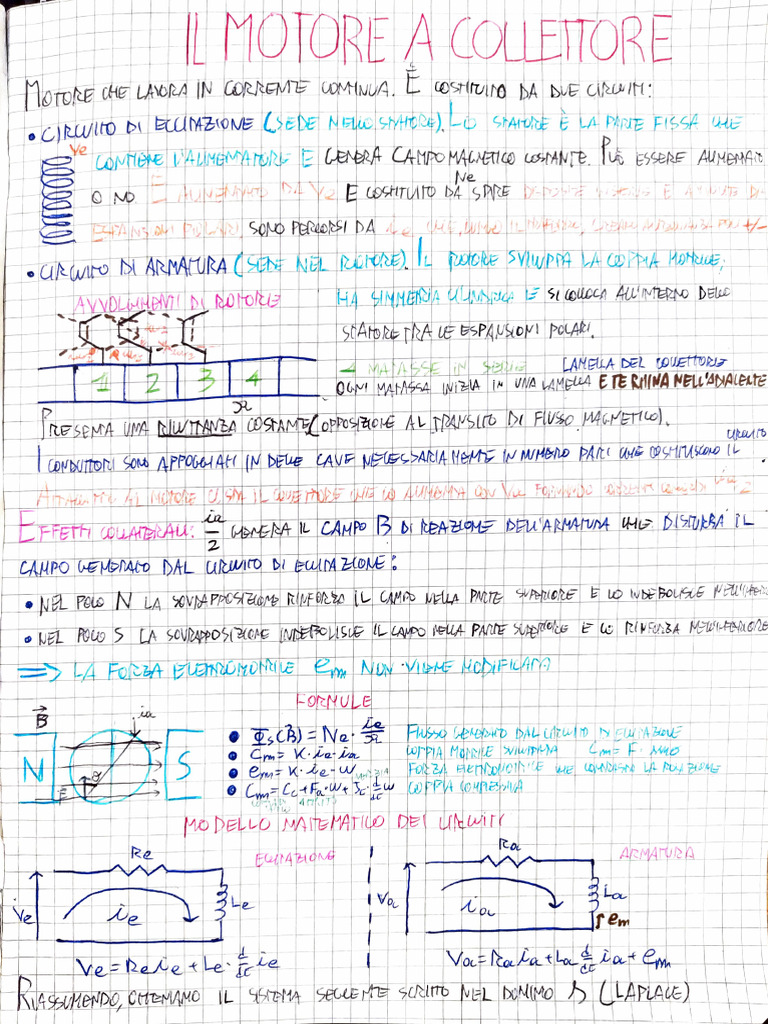 IL MOTORE A COLLETTORE
MOTORE CHE LAVORA IN CORRENTE CONTINUA. È COSTITUITO DA DUE CIRCUITI:
• CIRCUITO DI ECCITAZIONE (SEDE NELLO STATORE). LO STATORE È LA PARTE FISSA CHE
Ve
CONTIENE L'ALIMENTATORE E GENERA CAMPO MAGNETICO COSTANTE. PUÒ ESSERE ALIMENTATO
O NO E ALIMENTATO DA Ve E COSTITUITO DA Ne SPIRE
ESPANSIONI POLARI. SONO PERCORSI DA ie CHE
• CIRCUITO DI ARMATURA (SEDE NEL ROTORE). IL ROTORE SVILUPPA LA COPPIA MOTRICE,
AVVOLGIMENTI DI ROTORE
HA SIMMETRIA CILINDRICA E SI COLLOCA ALL'INTERNO DELLO
STATORE TRA LE ESPANSIONI POLARI.
4 MATASSE IN SERIE LAMELLA DEL COLLETTORE
1 2 3 4
OGNI MATASSA INIZIA IN UNA LAMELLA E TERMINA NELL'ADIACENTE
ℛ
PRESENTA UNA RILUTTANZA COSTANTE (OPPOSIZIONE AL TRANSITO DI FLUSSO MAGNETICO).
I CONDUTTORI SONO APPOGGIATI IN DELLE CAVE NECESSARIAMENTE IN NUMERO PARI CHE COSTITUISCONO IL CIRCUITO
AL MOTORE IL COLLETTORE CHE LO ALIMENTA CON Va
EFFETTI COLLATERALI: ia/2 GENERA IL CAMPO B DI REAZIONE DELL'ARMATURA CHE DISTURBA IL
CAMPO GENERATO DAL CIRCUITO DI ECCITAZIONE:
• NEL POLO N LA SOVRAPPOSIZIONE RINFORZA IL CAMPO NELLA PARTE SUPERIORE E LO INDEBOLISCE NELL'INFERIORE
• NEL POLO S LA SOVRAPPOSIZIONE INDEBOLISCE IL CAMPO NELLA PARTE SUPERIORE E LO RINFORZA NELL'INFERIORE
⇒ LA FORZA ELETTROMOTRICE em NON VIENE MODIFICATA
FORMULE
B ia
N S
θ
• Φs(B) = Ne · ie/ℛ FLUSSO GENERATO DAL CIRCUITO DI ECCITAZIONE
• Cm = K · ie · ia COPPIA MOTRICE SVILUPPATA Cm = F ·
• em = K · ie · w FORZA ELETTROMOTRICE CHE CONTRASTA LA ROTAZIONE
• Cm = Cc + Fa · w + Jc · d/dt w COPPIA COMPLESSIVA
MODELLO MATEMATICO DEI CIRCUITI
Re ECCITAZIONE
Ve ie Le
Ve = Re ie + Le · d/dt ie
Ra ARMATURA
Va ia La
em
Va = Ra ia + La d/dt ia + em
RIASSUMENDO, OTTENIAMO IL SISTEMA SEGUENTE SCRITTO NEL DOMINIO S (LAPLACE)